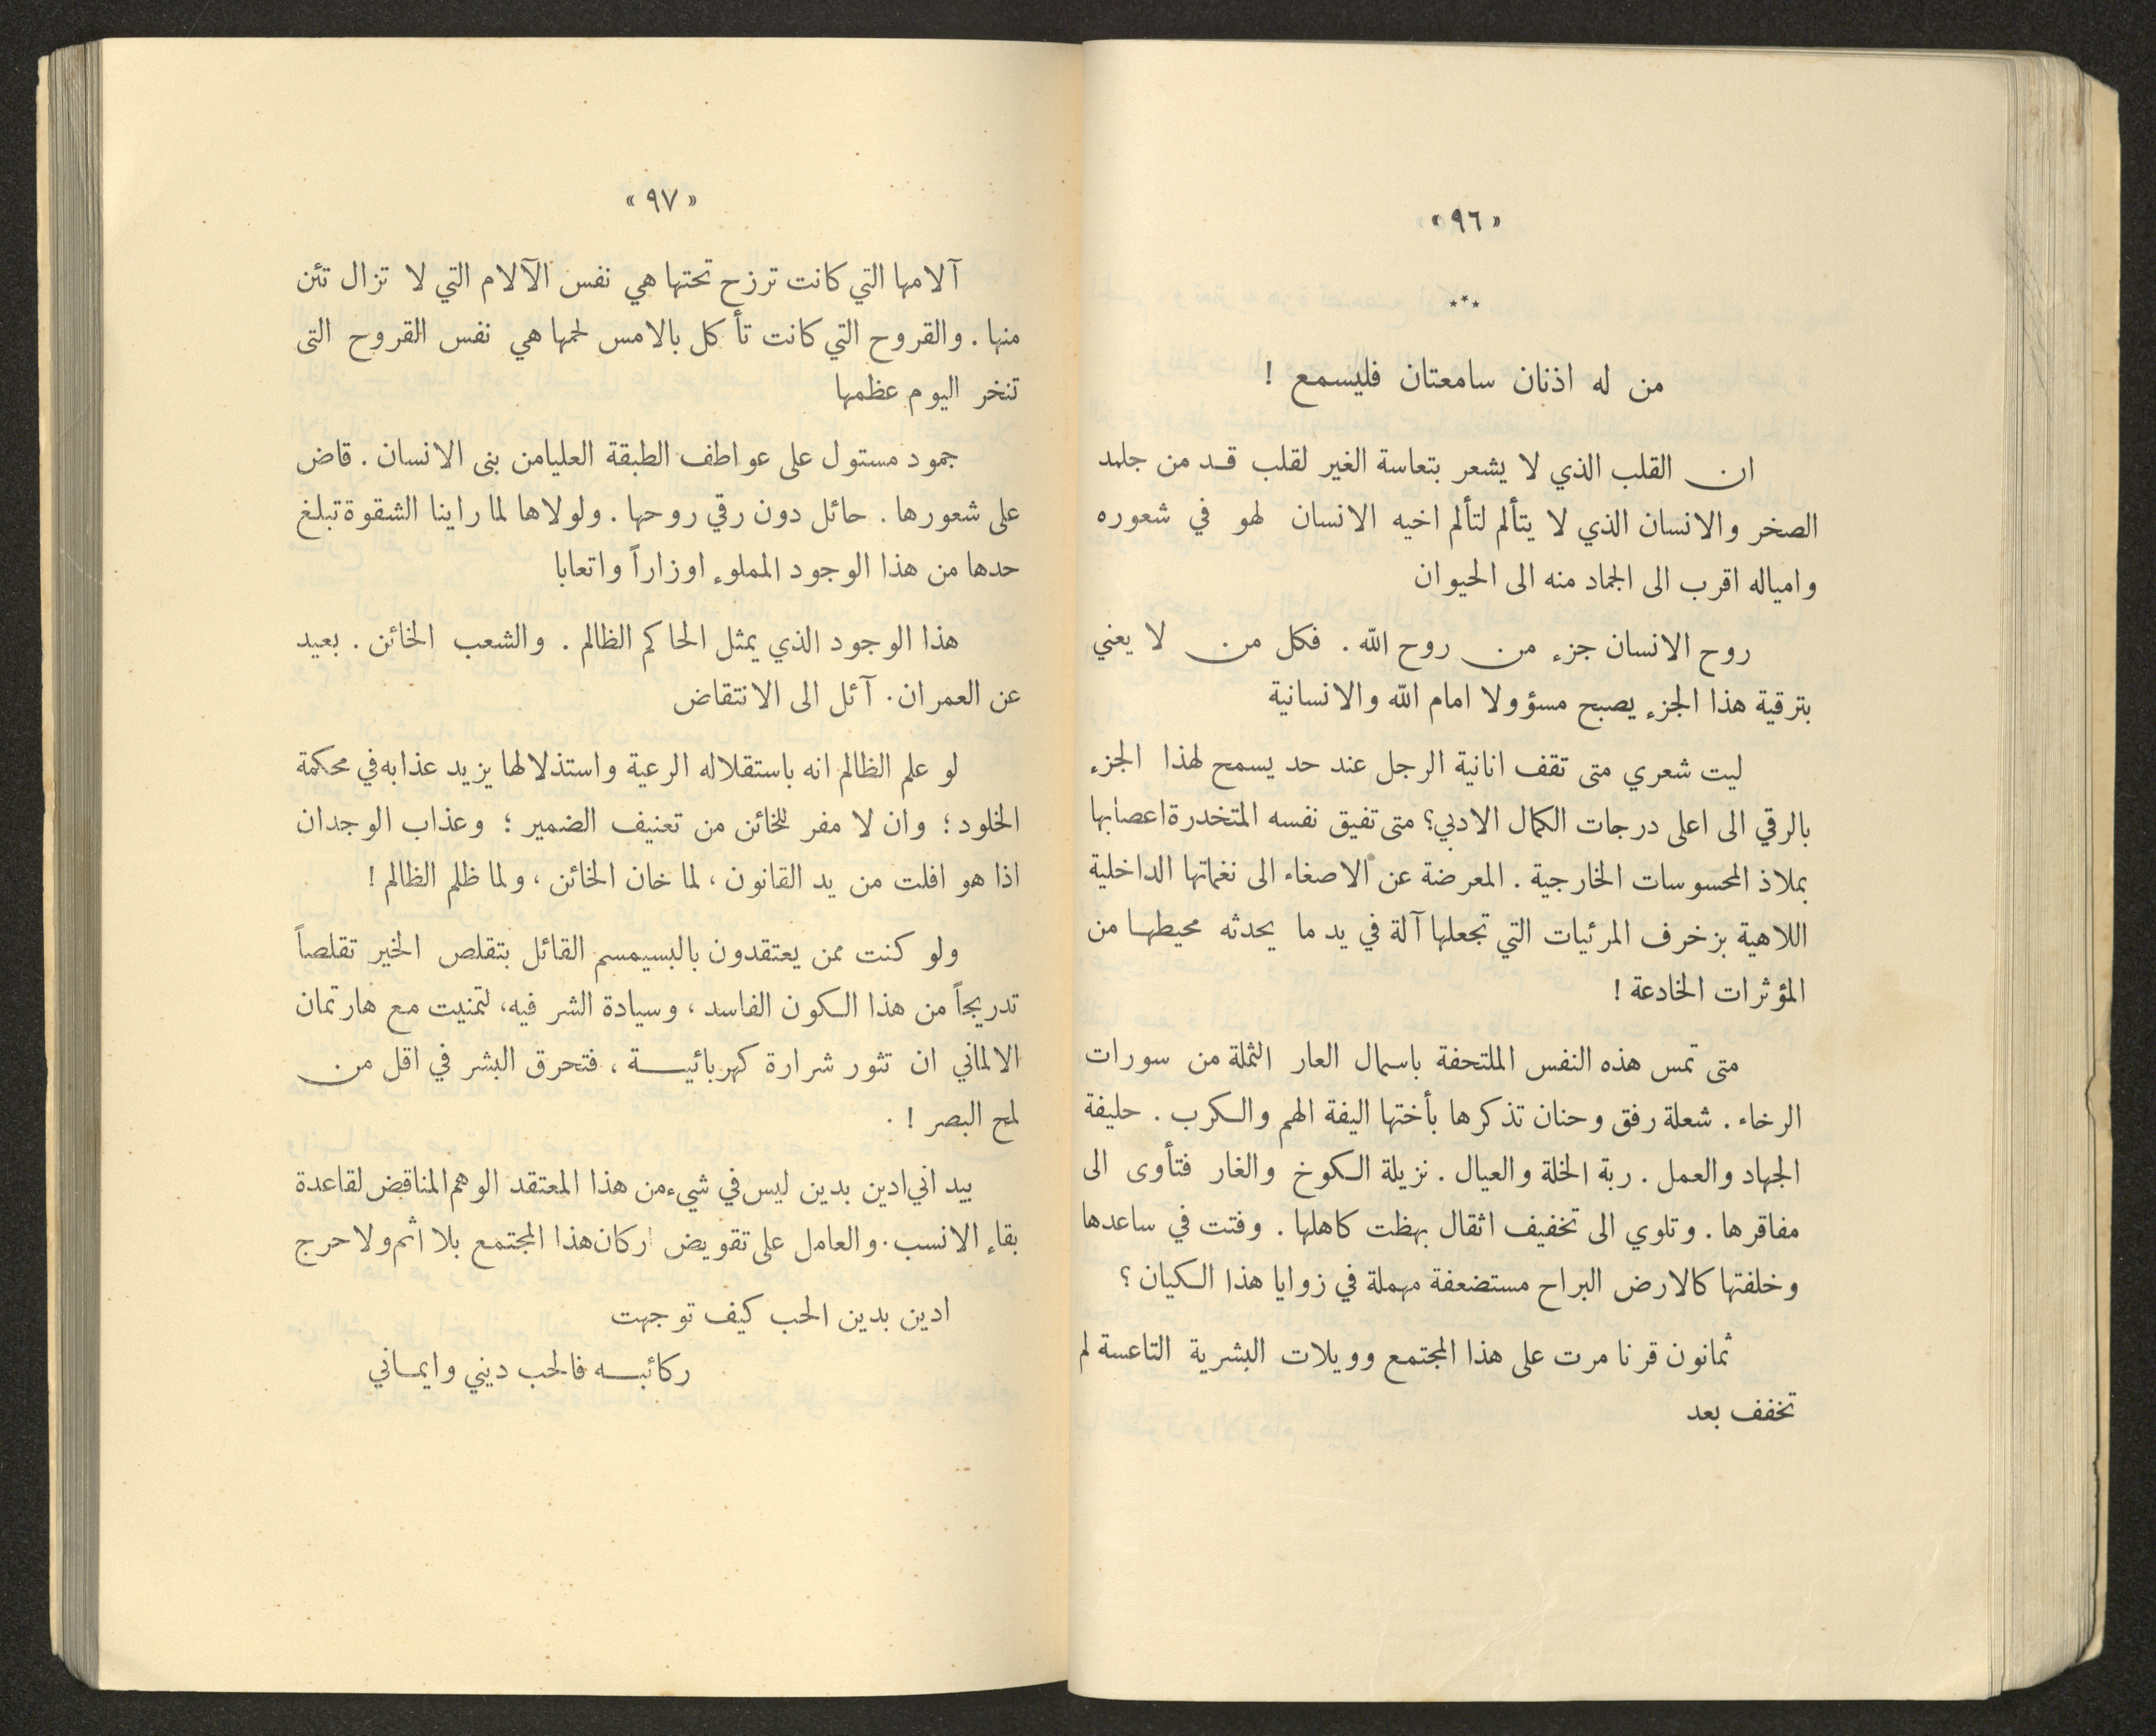 «٩٦»
***
من له اذنان سامعتان فليسمع !
ان القلب الذي لا يشعر بتعاسة الغير لقلب قد من جلمد
الصخر والانسان الذي لا يتألم لتألم اخيه الانسان لهو في شعوره
وامياله اقرب الى الجماد منه الى الحيوان
روح الانسان جزء من روح الله . فكل من لا يعني
بترقية هذا الجزء يصبح مسؤولا امام الله والانسانية
ليت شعري متى تقف انانية الرجل عند حد يسمح لهذا الجزء
بالرقي الى اعلى درجات الكمال الادبي؟ متى تفيق نفسه المتخدرة اعصابها
بملاذ المحسوسات الخارجية . المعرضة عن الاصغاء الى نغماتها الداخلية
اللاهية بزخرف المرئيات التي تجعلها آلة في يد ما يحدثه محيطها من
المؤثرات الخادعة !
متى تمس هذه النفس الملتحفة باسمال العار الثملة من سورات
الرخاء . شعلة رفق وحنان تذكرها بأختها اليفة الهم والكرب . حليفة
الجهاد والعمل . ربة الخلة والعيال . نزيلة الكوخ والغار فتأوى الى
مفاقرها . وتلوي الى تخفيف اثقال بهظت كاهلها . وفتت في ساعدها
وخلفتها كالارض البراح مستضعفة مهملة في زوايا هذا الكيان ؟
ثمانون قرنا مرت على هذا المجتمع وويلات البشرية التاعسة لم
تخفف بعد
«٩٧»
آلامها التي كانت ترزح تحتها هي نفس الآلام التي لا تزال تئن
منها . والقروح التي كانت تأكل بالامس لحمها هي نفس القروح التى
تنخر اليوم عظمها
جمود مستول على عواطف الطبقة العليا من بنى الانسان . قاض
على شعورها . حائل دون رقي روحها . ولولاها لما راينا الشقوة تبلغ
حدها من هذا الوجود المملوء اوزاراً واتعابا
هذا الوجود الذي يمثل الحاكم الظالم . والشعب الخائن . بعيد
عن العمران . آئل الى الانتقاض
لو علم الظالم انه باستقلاله الرعية واستذلالها يزيد عذابه في محكمة
الخلود ؛ وان لا مفر للخائن من تعنيف الضمير ؛ وعذاب الوجدان
اذا هو افلت من يد القانون ، لما خان الخائن ، ولما ظلم الظالم !
ولو كنت ممن يعتقدون بالبسيمسم القائل بتقلص الخير تقلصاً
تدريجاً من هذا الكون الفاسد ، وسيادة الشر فيه ، لتمنيت مع هارتمان
الالماني ان تثور شرارة كهربائية ، فتحرق البشر في اقل من
لمح البصر ! .
بيد اني ادين بدين ليس في شيء من هذا المعتقد الوهم المناقض لقاعدة
بقاء الانسب . والعامل على تقويض اركان هذا المجتمع بلا اثم ولا حرج
ادين بدين الحب كيف توجهت
ركائبه فالحب ديني وايماني